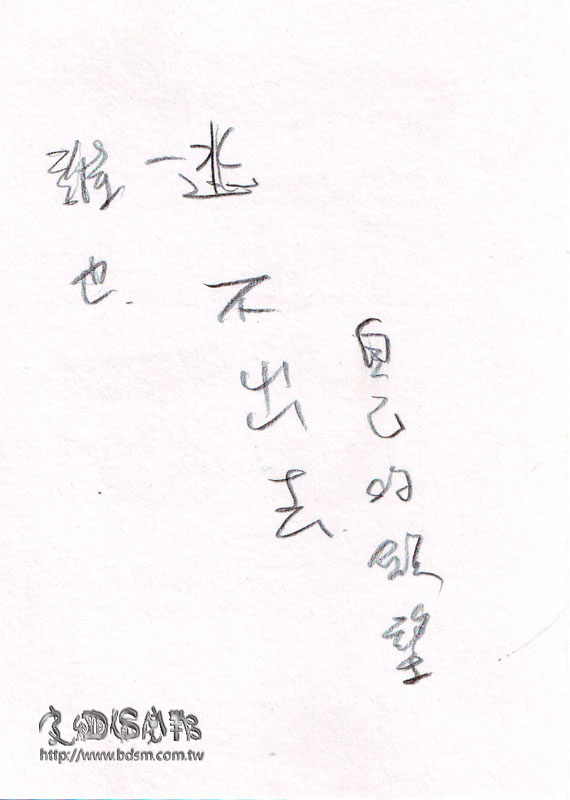 誰也
逃不出去
自己的欲望
皮繩愉虐邦
http://www.bdsm.com.tw